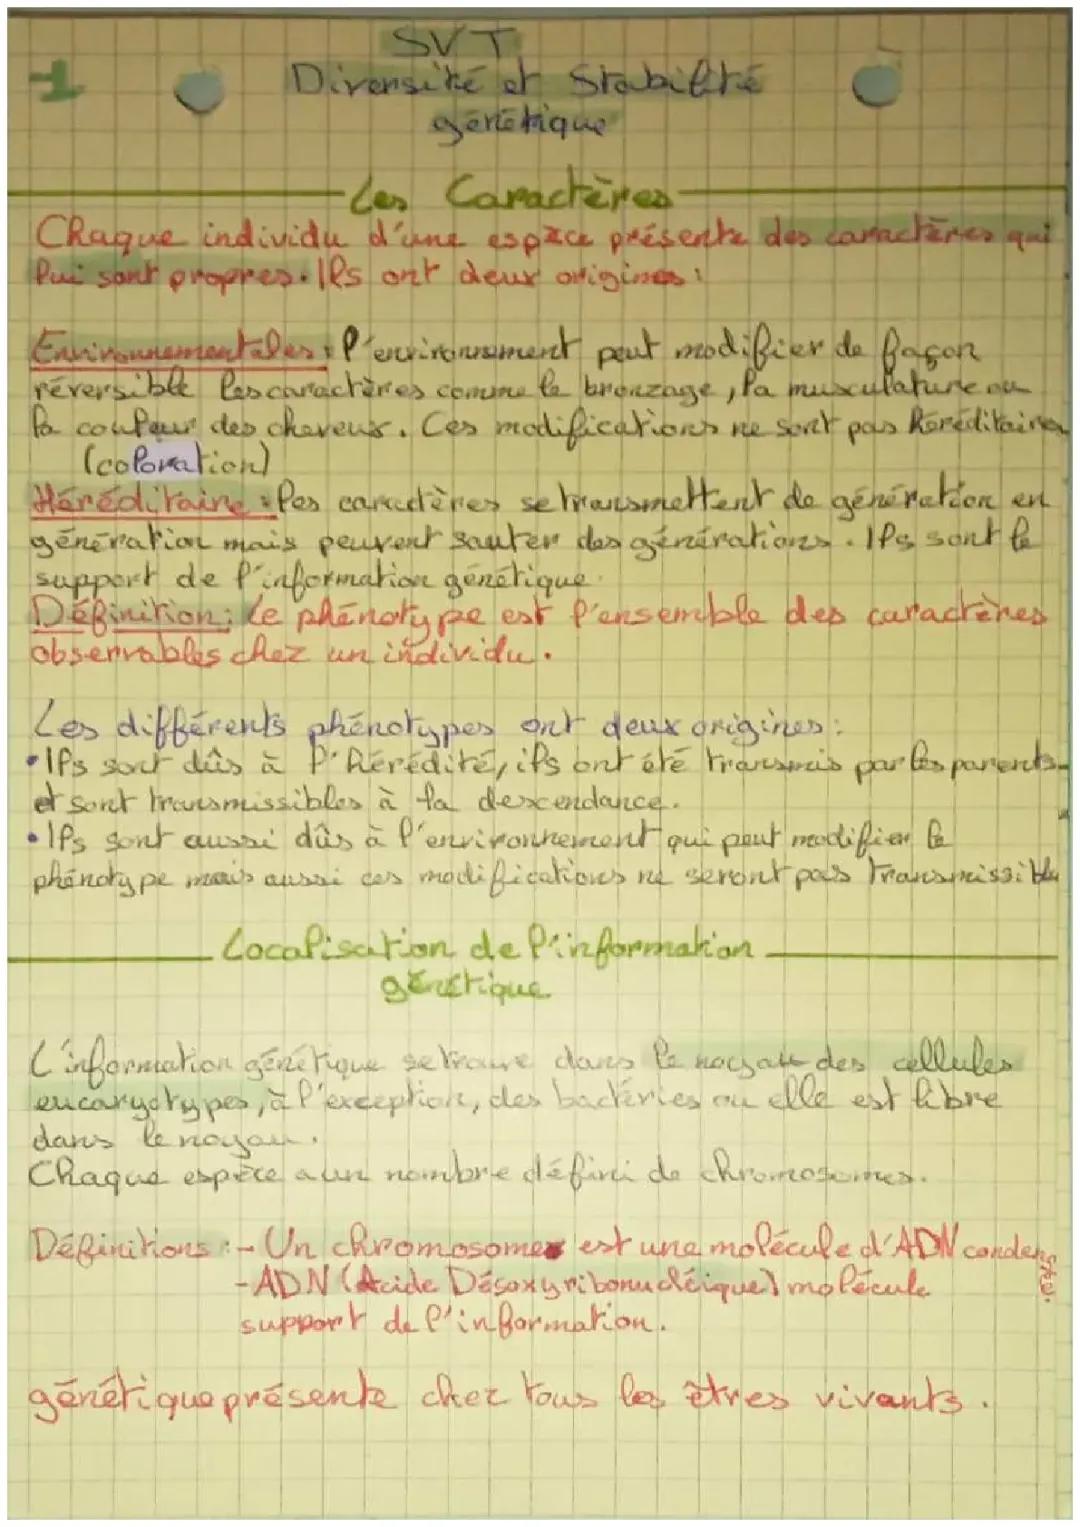 1
SVT
Diversité et Stabilité
génétique
Les Caractères
Chaque individu d'une espèce présente des caractères qui
lui sont propres. Ils ont deux origines :
Environnementales : l'environnement peut modifier de façon
réversible les caractères comme le bronzage, la musculature ou
la couleur des cheveux. Ces modifications ne sont pas héréditaires
(coloration)
Héréditaire : les caractères se transmettent de génération en
génération mais peuvent sauter des générations. Ils sont le
support de l'information génétique.
Définition : Le phénotype est l'ensemble des caractères
observables chez un individu.
Les différents phénotypes ont deux origines :
• Ils sont dûs à l'hérédité, ils ont été transmis par les parents
et sont transmissibles à la descendance.
• Ils sont aussi dûs à l'environnement qui peut modifier le
phénotype mais aussi ces modifications ne seront pas transmissibles
Localisation de l'information
génétique
L'information génétique se trouve dans le noyau des cellules
eucaryotypes, à l'exception, des bactéries ou elle est libre
dans le noyau.
Chaque espèce a un nombre défini de chromosomes.
Définitions : - Un chromosome est une molécule d'ADN condensée.
- ADN (Acide Désoxyribonucléique) molécule
support de l'information.
génétique présente chez tous les êtres vivants.